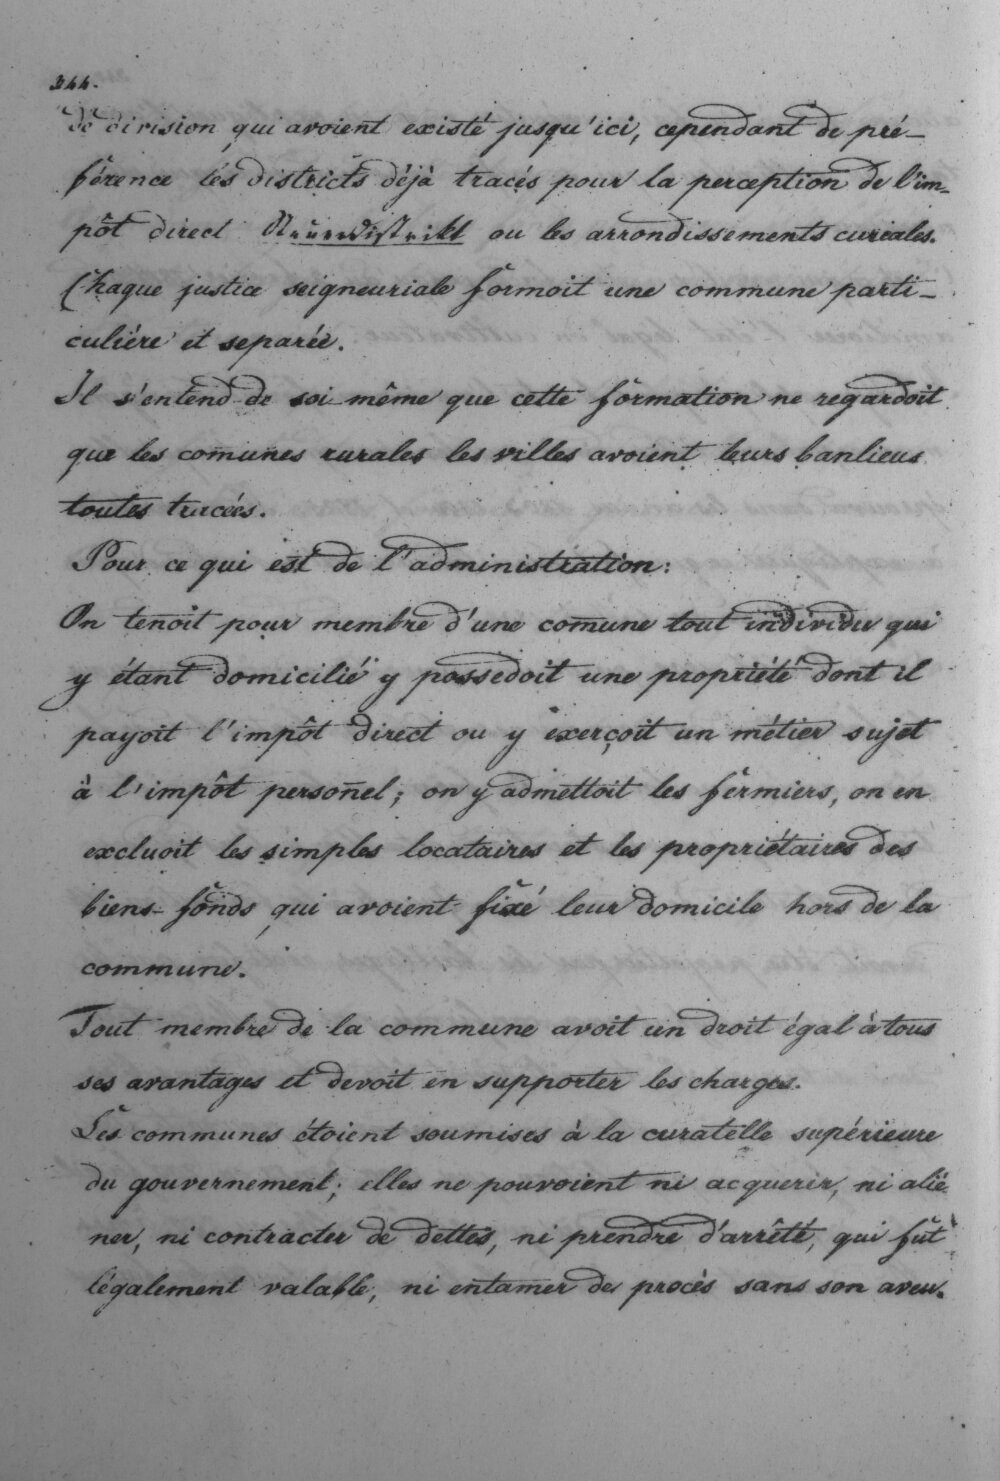 344.
de division qui avoient existé jusqu'ici, cependant de pré-
férence les districts déjà tracés pour la perception de l'im-
pôt direct Steuerdistrikt ou les arrondissements curiales.
Chaque justice seigneuriale formoit une commune parti-
culiére et separée.
Il s'entend de soi-même que cette formation ne regardoit
que les com̄unes rurales les villes avoient leurs banlieus
toutes tracées.
Pour ce qui est de l'administration:
On tenoit pour membre d'une com̄une tout individu qui
y étant domicilié y possedoit une propriété dont il
payoit l'impôt direct ou y exerçoit un métier sujet
à l'impôt person̄el; on y admettoit les fermiers, on en
excluoit les simples locataires et les propriétaires des
biens-fonds qui avoient fixé leur domicile hors de la
commune.
Tout membre de la commune avoit un droit égal à tous
ses avantages et devoit en supporter les charges.
Les communes étoient soumises à la curatelle supérieure
du gouvernement; elles ne pouvoient ni acquerir, ni alié-
ner, ni contracter de dettes, ni prendre d'arrêté, qui fût
légalement valable, ni entamer de procès sans son aveu.